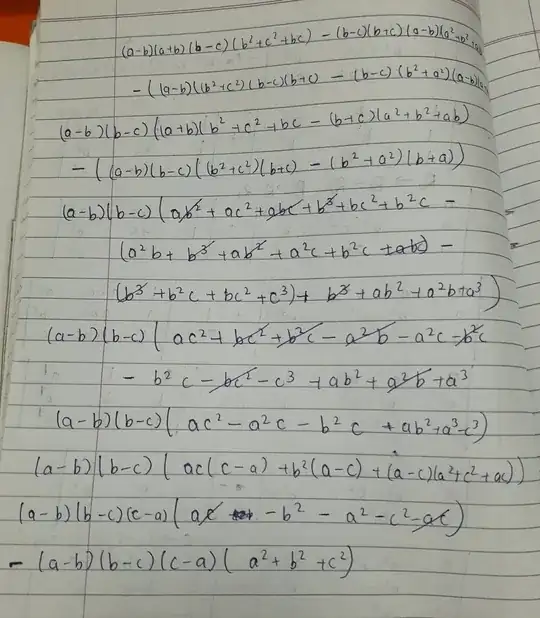 (a-b)(a+b)(b-c)(b²+c²+bc) - (b-c)(b+c)(a-b)(a²+b²+ab
-((a-b)(b²+c²)(b-c)(b+c) - (b-c)(b²+a²)(a-b)(
(a-b)(b-c)((a+b)(b²+c²+bc - (b+c)(a²+b²+ab)
-((a-b)(b-c)((b²+c²)(b+c) - (b²+a²)(b+a))
(a-b)(b-c)(ab²+ac²+abc+b³+bc²+b²c -
(a²b+b³+ab²+a²c+b²c+abc) -
(b³+b²c+bc²+c³)+ b³+ab²+a²b+a³)
(a-b)(b-c)(ac²+bc²+b²c-a²b-a²c-b²c
- b²c-bc²-c³+ab²+a²b+a³
(a-b)(b-c)(ac²-a²c-b²c+ab²+a³-c³)
(a-b)(b-c)(ac(c-a)+b²(a-c)+(a-c)(a²+c²+ac))
(a-b)(b-c)(c-a)(ac -b²-a²-c²-ac)
-(a-b)(b-c)(c-a)(a²+b²+c²)